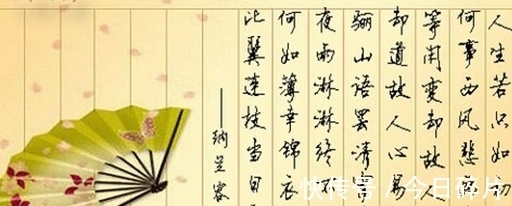 人生若只如初
何事西风悲
等闲变却故人
却道故人心易
骊山语罢清
夜雨淋淋终
何如薄幸锦衣
比翼连枝当日
——纳兰容
快传号 / 今日碎片